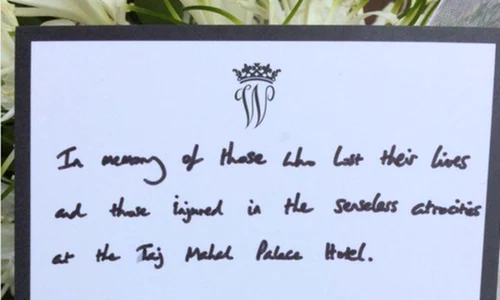 W
In memory of those who lost their lives
and those injured in the senseless atrocities
at the Taj Mahal Palace Hotel.